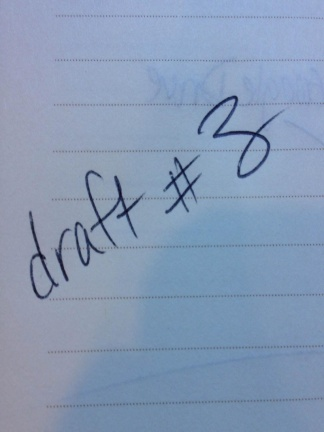 draft # 3